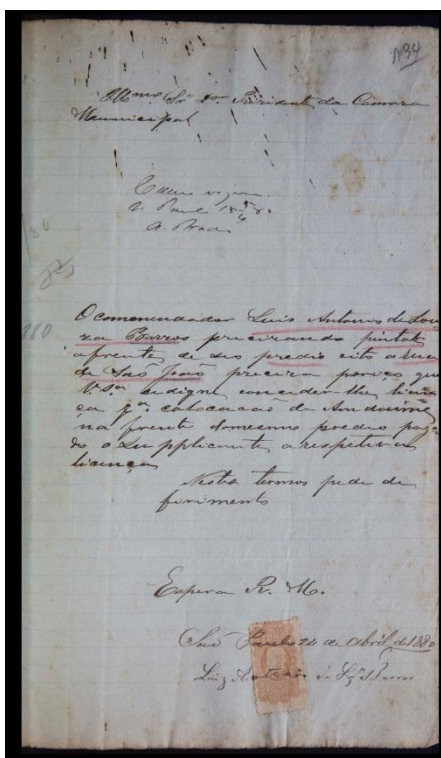 Illmo Snr Dr. Prezidente da Camara
Municipal
O comendador Luis Antonio de Sou
za Barros precizando pintar
a frente de seo predio cito a rua
de São João preciza por isso que
V. Sa se digne conceder lhe licen
ça pa. colocacão de Andaime
na frente do mesmo predio pagan
do o Supplicante a respetiva
licença
Nestes termos pede de
ferimento
Espera R. M.
São Paulo 24 de Abril de 1880
Luiz Antonio de Sza Barros